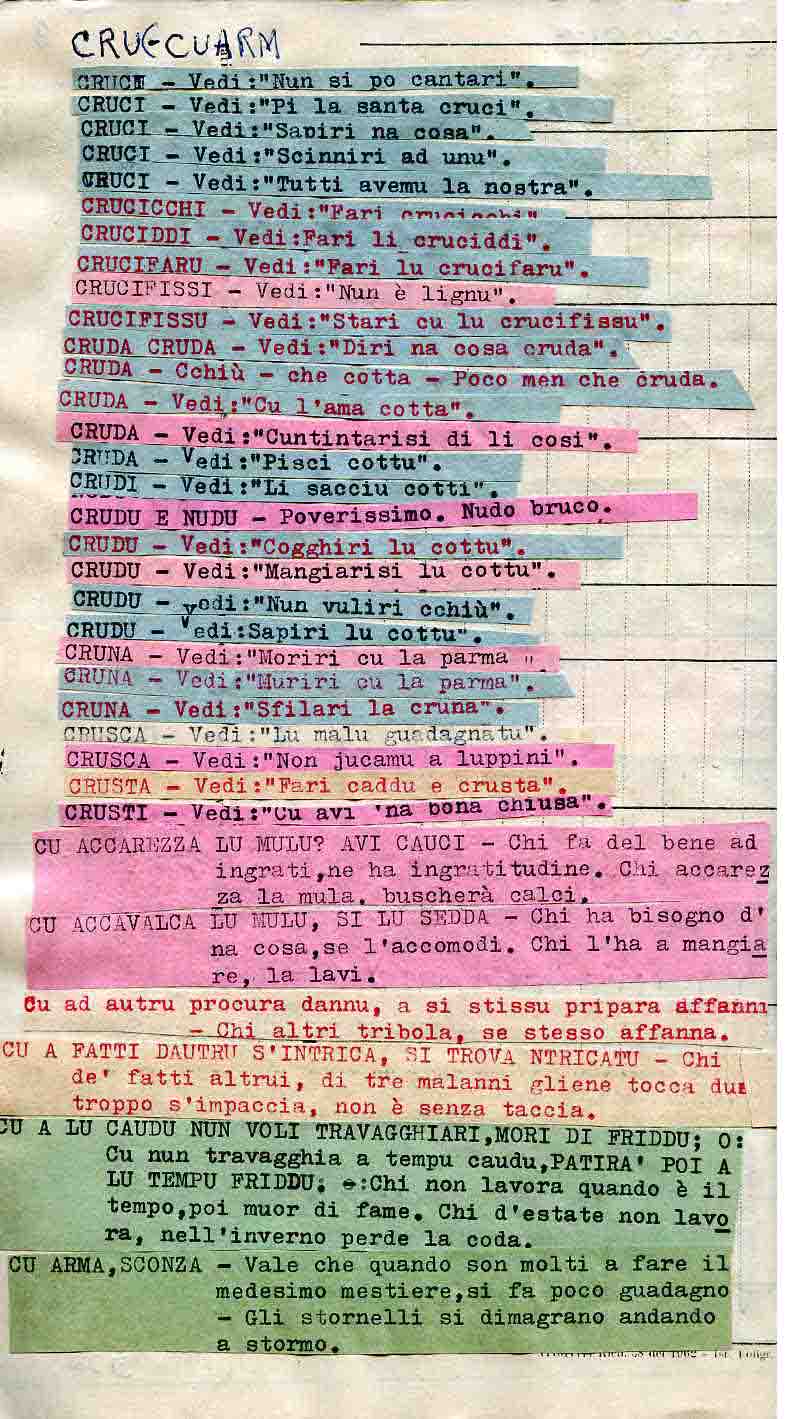 CRUCCUARM
CRUCI - Vedi:"Nun si po cantari".
CRUCI - Vedi:"Pi la santa cruci".
CRUCI - Vedi:"Sapiri na cosa".
CRUCI - Vedi:"Scinniri ad unu".
CRUCI - Vedi:"Tutti avemu la nostra".
CRUCICCHI - Vedi:"Fari crucicchi"
CRUCIDDI - Vedi:Fari li cruciddi".
CRUCIFARU - Vedi:"Fari lu crucifaru".
CRUCIFISSI - Vedi:"Nun è lignu".
CRUCIFISSU - Vedi:"Stari cu lu crucifissu".
CRUDA CRUDA - Vedi:"Diri na cosa cruda".
CRUDA - Cchiù - che cotta - Poco men che cruda.
CRUDA - Vedi:"Cu l'ama cotta".
CRUDA - Vedi:"Cuntintarisi di li cosi".
CRUDA - Vedi:"Pisci cottu".
CRUDI - Vedi:"Li sacciu cotti".
CRUDU E NUDU - Poverissimo. Nudo bruco.
CRUDU - Vedi:"Cogghiri lu cottu".
CRUDU - Vedi:"Mangiarisi lu cottu".
CRUDU - Vedi:"Nun vuliri cchiù".
CRUDU - Vedi:Sapiri lu cottu".
CRUNA - Vedi:"Moriri cu la parma "
CRUNA - Vedi:"Muriri cu la parma".
CRUNA - Vedi:"Sfilari la cruna".
CRUSCA - Vedi:"Lu malu guadagnatu".
CRUSCA - Vedi:"Non jucamu a luppini".
CRUSTA - Vedi:"Fari caddu e crusta".
CRUSTI - Vedi:"Cu avi 'na bona chiusa".
CU ACCAREZZA LU MULU? AVI CAUCI - Chi fa del bene ad
ingrati,ne ha ingratitudine. Chi accarez
za la mula. buscherà calci.
CU ACCAVALCA LU MULU, SI LU SEDDA - Chi ha bisogno d'
na cosa,se l'accomodi. Chi l'ha a mangia
re, la lavi.
Cu ad autru procura dannu, a si stissu pripara affanni
- Chi altri tribola, se stesso affanna.
CU A FATTI DAUTRU S'INTRICA, SI TROVA NTRICATU - Chi
de' fatti altrui, di tre malanni gliene tocca dui
troppo s'impaccia, non è senza taccia.
CU A LU CAUDU NUN VOLI TRAVAGGHIARI,MORI DI FRIDDU; O:
Cu nun travagghia a tempu caudu,PATIRA' POI A
LU TEMPU FRIDDU; e:Chi non lavora quando è il
tempo,poi muor di fame. Chi d'estate non lavo
ra, nell'inverno perde la coda.
CU ARMA,SCONZA - Vale che quando son molti a fare il
medesimo mestiere,si fa poco guadagno
- Gli stornelli si dimagrano andando
a stormo.